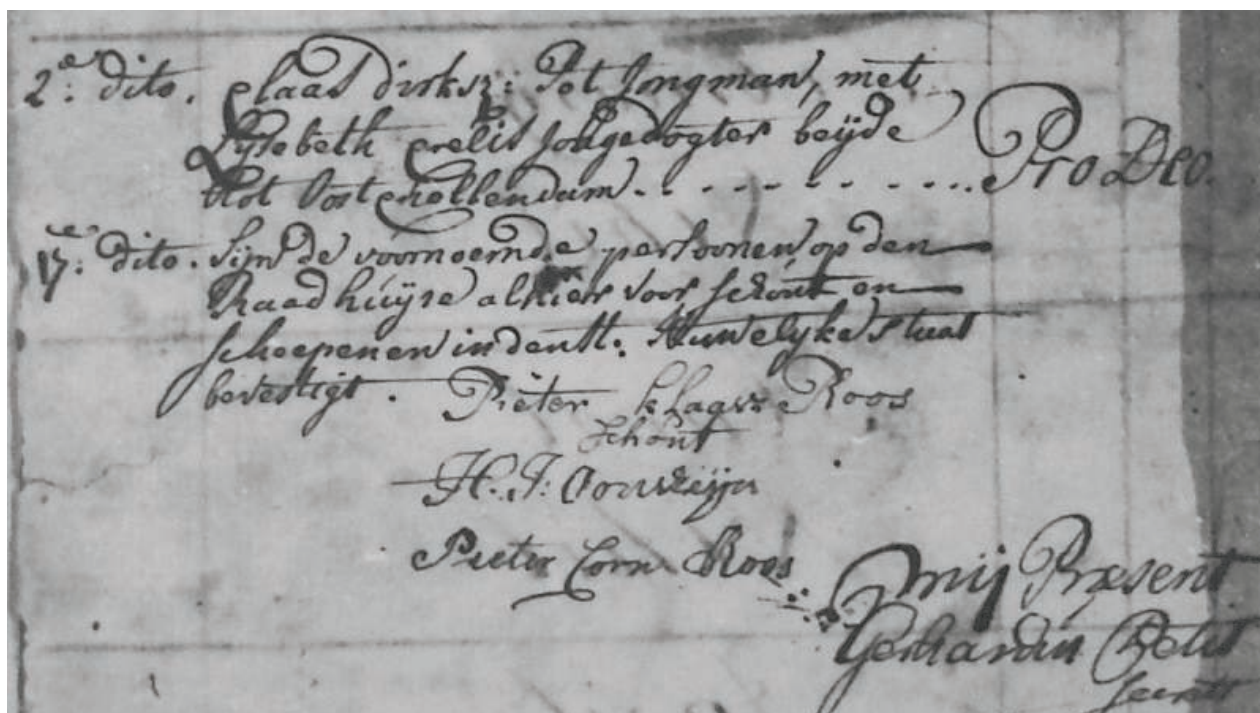 2.e dito. Claas dirksz: Pot Jongman, met
Lijsebeth Crelis Jongedogter beijde
tot Oostcnollendam. - - - - - - - - Pro Deo.
17.e dito. Sijn de voornoemde persoonen op den
Raadhuijse alhier voor Schout en
Scheepenen in den Huwelyke Staat
bevestigt. Pieter Klaasz Roos
Schout
H. J:
Pieter Corn Roos
mij Præsent
Gerhardus
Secrets